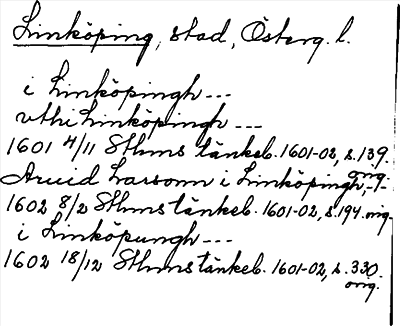 Linköping, stad, Österg. l.
i Linköpingh ---
vthi Linköpingh ---
1601 4/11 Sthms tänkeb. 1601-02, s. 139.
orig.
Aruid Larsonn i Linköpingh, -"-
1602 8/2 Sthms tänkeb. 1601-02, s. 194. orig.
i Linköpungh ---
1602 18/12 Sthms tänkeb. 1601-02, s. 330.
orig.